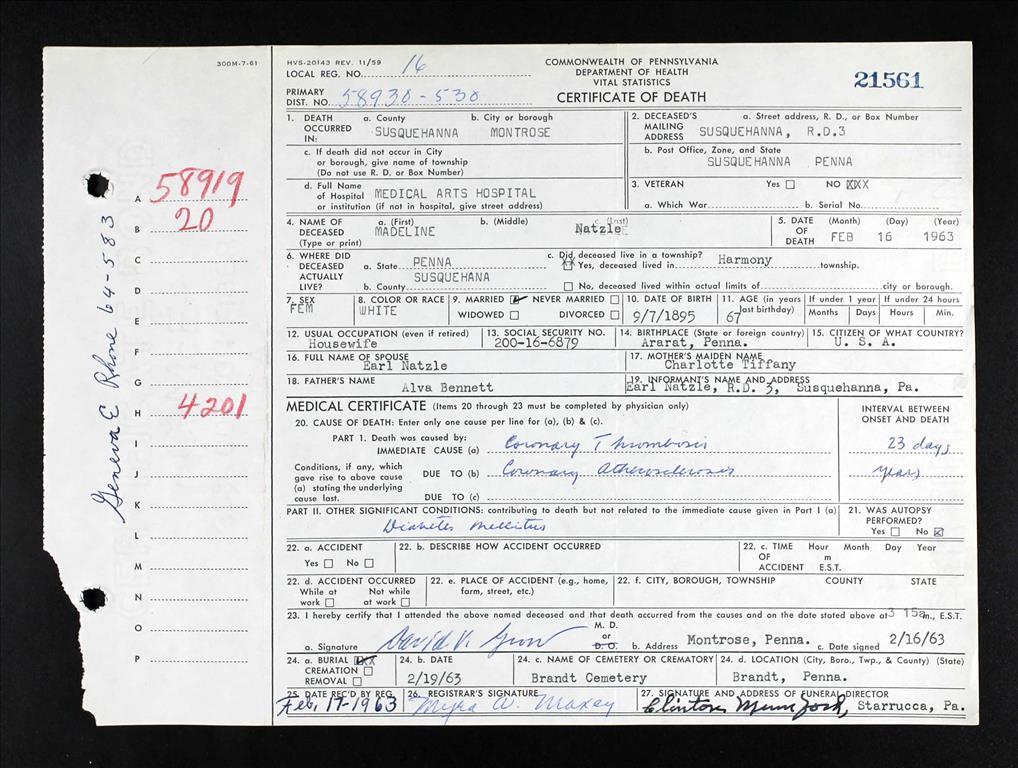 300M-7-61
HVS-20143 REV. 11/59
LOCAL REG. NO. 16
COMMONWEALTH OF PENNSYLVANIA
DEPARTMENT OF HEALTH
VITAL STATISTICS
CERTIFICATE OF DEATH
21561
PRIMARY
DIST. NO. 58930-530
1. DEATH OCCURRED IN: a. County b. City or borough
SUSQUEHANNA MONTROSE
c. If death did not occur in City
or borough, give name of township
(Do not use R. D. or Box Number)
d. Full Name
of Hospital MEDICAL ARTS HOSPITAL
or institution (if not in hospital, give street address)
2. DECEASED'S MAILING ADDRESS a. Street address, R. D., or Box Number
SUSQUEHANNA, R.D.3
b. Post Office, Zone, and State
SUSQUEHANNA PENNA
3. VETERAN Yes NO XXX
a. Which War b. Serial No.
4. NAME OF DECEASED (Type or print) a. (First) b. (Middle) c. (Last)
MADELINE Natzle
5. DATE OF DEATH (Month) (Day) (Year)
FEB 16 1963
6. WHERE DID DECEASED ACTUALLY LIVE?
a. State PENNA
b. County SUSQUEHANA
c. Did deceased live in a township?
Yes, deceased lived in Harmony township.
No, deceased lived within actual limits of city or borough.
7. SEX
FEM
8. COLOR OR RACE
WHITE
9. MARRIED NEVER MARRIED
WIDOWED DIVORCED
10. DATE OF BIRTH
9/7/1895
11. AGE (in years last birthday)
67
If under 1 year If under 24 hours
Months Days Hours Min.
12. USUAL OCCUPATION (even if retired)
Housewife
13. SOCIAL SECURITY NO.
200-16-6879
14. BIRTHPLACE (State or foreign country)
Ararat, Penna.
15. CITIZEN OF WHAT COUNTRY?
U. S. A.
16. FULL NAME OF SPOUSE
Earl Natzle
17. MOTHER'S MAIDEN NAME
Charlotte Tiffany
18. FATHER'S NAME
Alva Bennett
19. INFORMANT'S NAME AND ADDRESS
Earl Natzle, R.D. 3, Susquehanna, Pa.
MEDICAL CERTIFICATE (Items 20 through 23 must be completed by physician only)
INTERVAL BETWEEN
ONSET AND DEATH
20. CAUSE OF DEATH: Enter only one cause per line for (a), (b) & (c).
PART 1. Death was caused by:
IMMEDIATE CAUSE (a) Coronary Thrombosis 23 days
Conditions, if any, which
gave rise to above cause
(a) stating the underlying
cause last.
DUE TO (b) Coronary Atherosclerosis years
DUE TO (c)
PART II. OTHER SIGNIFICANT CONDITIONS: contributing to death but not related to the immediate cause given in Part I (a)
Diabetes Mellitus
21. WAS AUTOPSY PERFORMED?
Yes No
22. a. ACCIDENT
Yes No
22. b. DESCRIBE HOW ACCIDENT OCCURRED
22. c. TIME OF ACCIDENT Hour Month Day Year
m
E.S.T.
22. d. ACCIDENT OCCURRED
While at work Not while at work
22. e. PLACE OF ACCIDENT (e.g., home, farm, street, etc.)
22. f. CITY, BOROUGH, TOWNSHIP COUNTY STATE
23. I hereby certify that I attended the above named deceased and that death occurred from the causes and on the date stated above at 3 15a m., E.S.T.
a. Signature David V. M. D. or D. O. b. Address Montrose, Penna. c. Date signed 2/16/63
24. a. BURIAL XXX
CREMATION
REMOVAL
24. b. DATE
2/19/63
24. c. NAME OF CEMETERY OR CREMATORY
Brandt Cemetery
24. d. LOCATION (City, Boro., Twp., & County) (State)
Brandt, Penna.
25. DATE REC'D BY REG.
Feb. 17-1963
26. REGISTRAR'S SIGNATURE
Myra W. Maxey
27. SIGNATURE AND ADDRESS OF FUNERAL DIRECTOR
Clinton Starrucca, Pa.
Geneva E Rhone 64-583
A 58919
B 20
C
D
E
F
G
H 4201
I
J
K
L
M
N
O
P